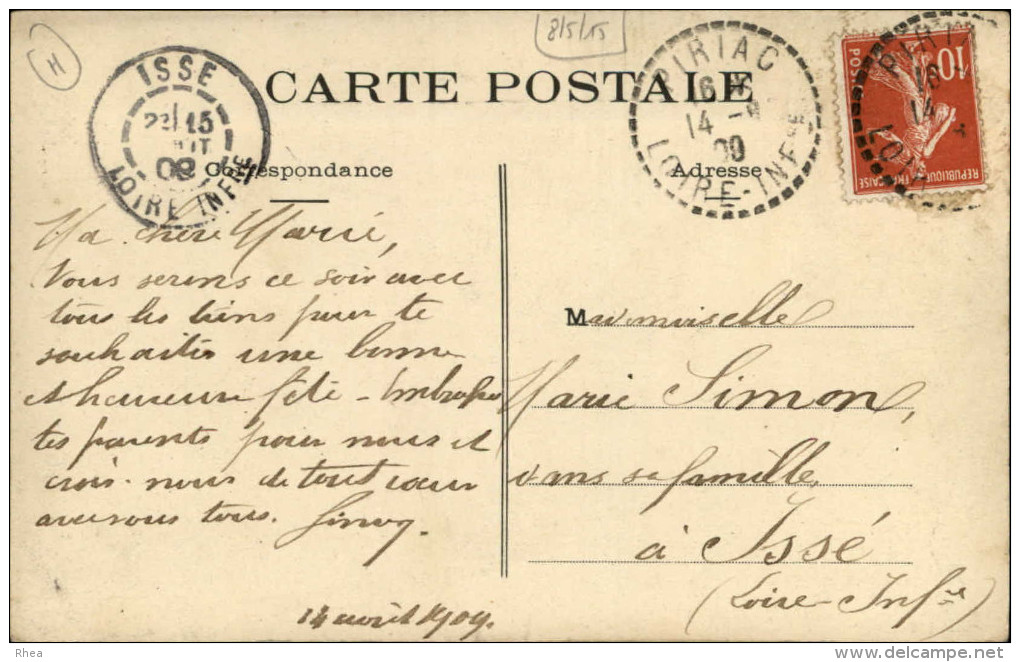 H
8/5/15
ISSE
15
09
LOIRE INFRE
CARTE POSTALE
PIRIAC
16
14 -8
09
LOIRE-INFRE
10
POSTES
REPUBLIQUE FRANÇAISE
Correspondance
Adresse
Ma chère Marie,
Nous serons ce soir avec
tous les tiens pour te
souhaiter une bonne
et heureuse fête - Embrasse
tes parents pour nous et
crois-nous de tout cœur
avec vous tous.
14 août 1909.
Mademoiselle
Marie Simon,
dans sa famille,
à Issé
(Loire-Infre)
Rhea
www.delcampe.net